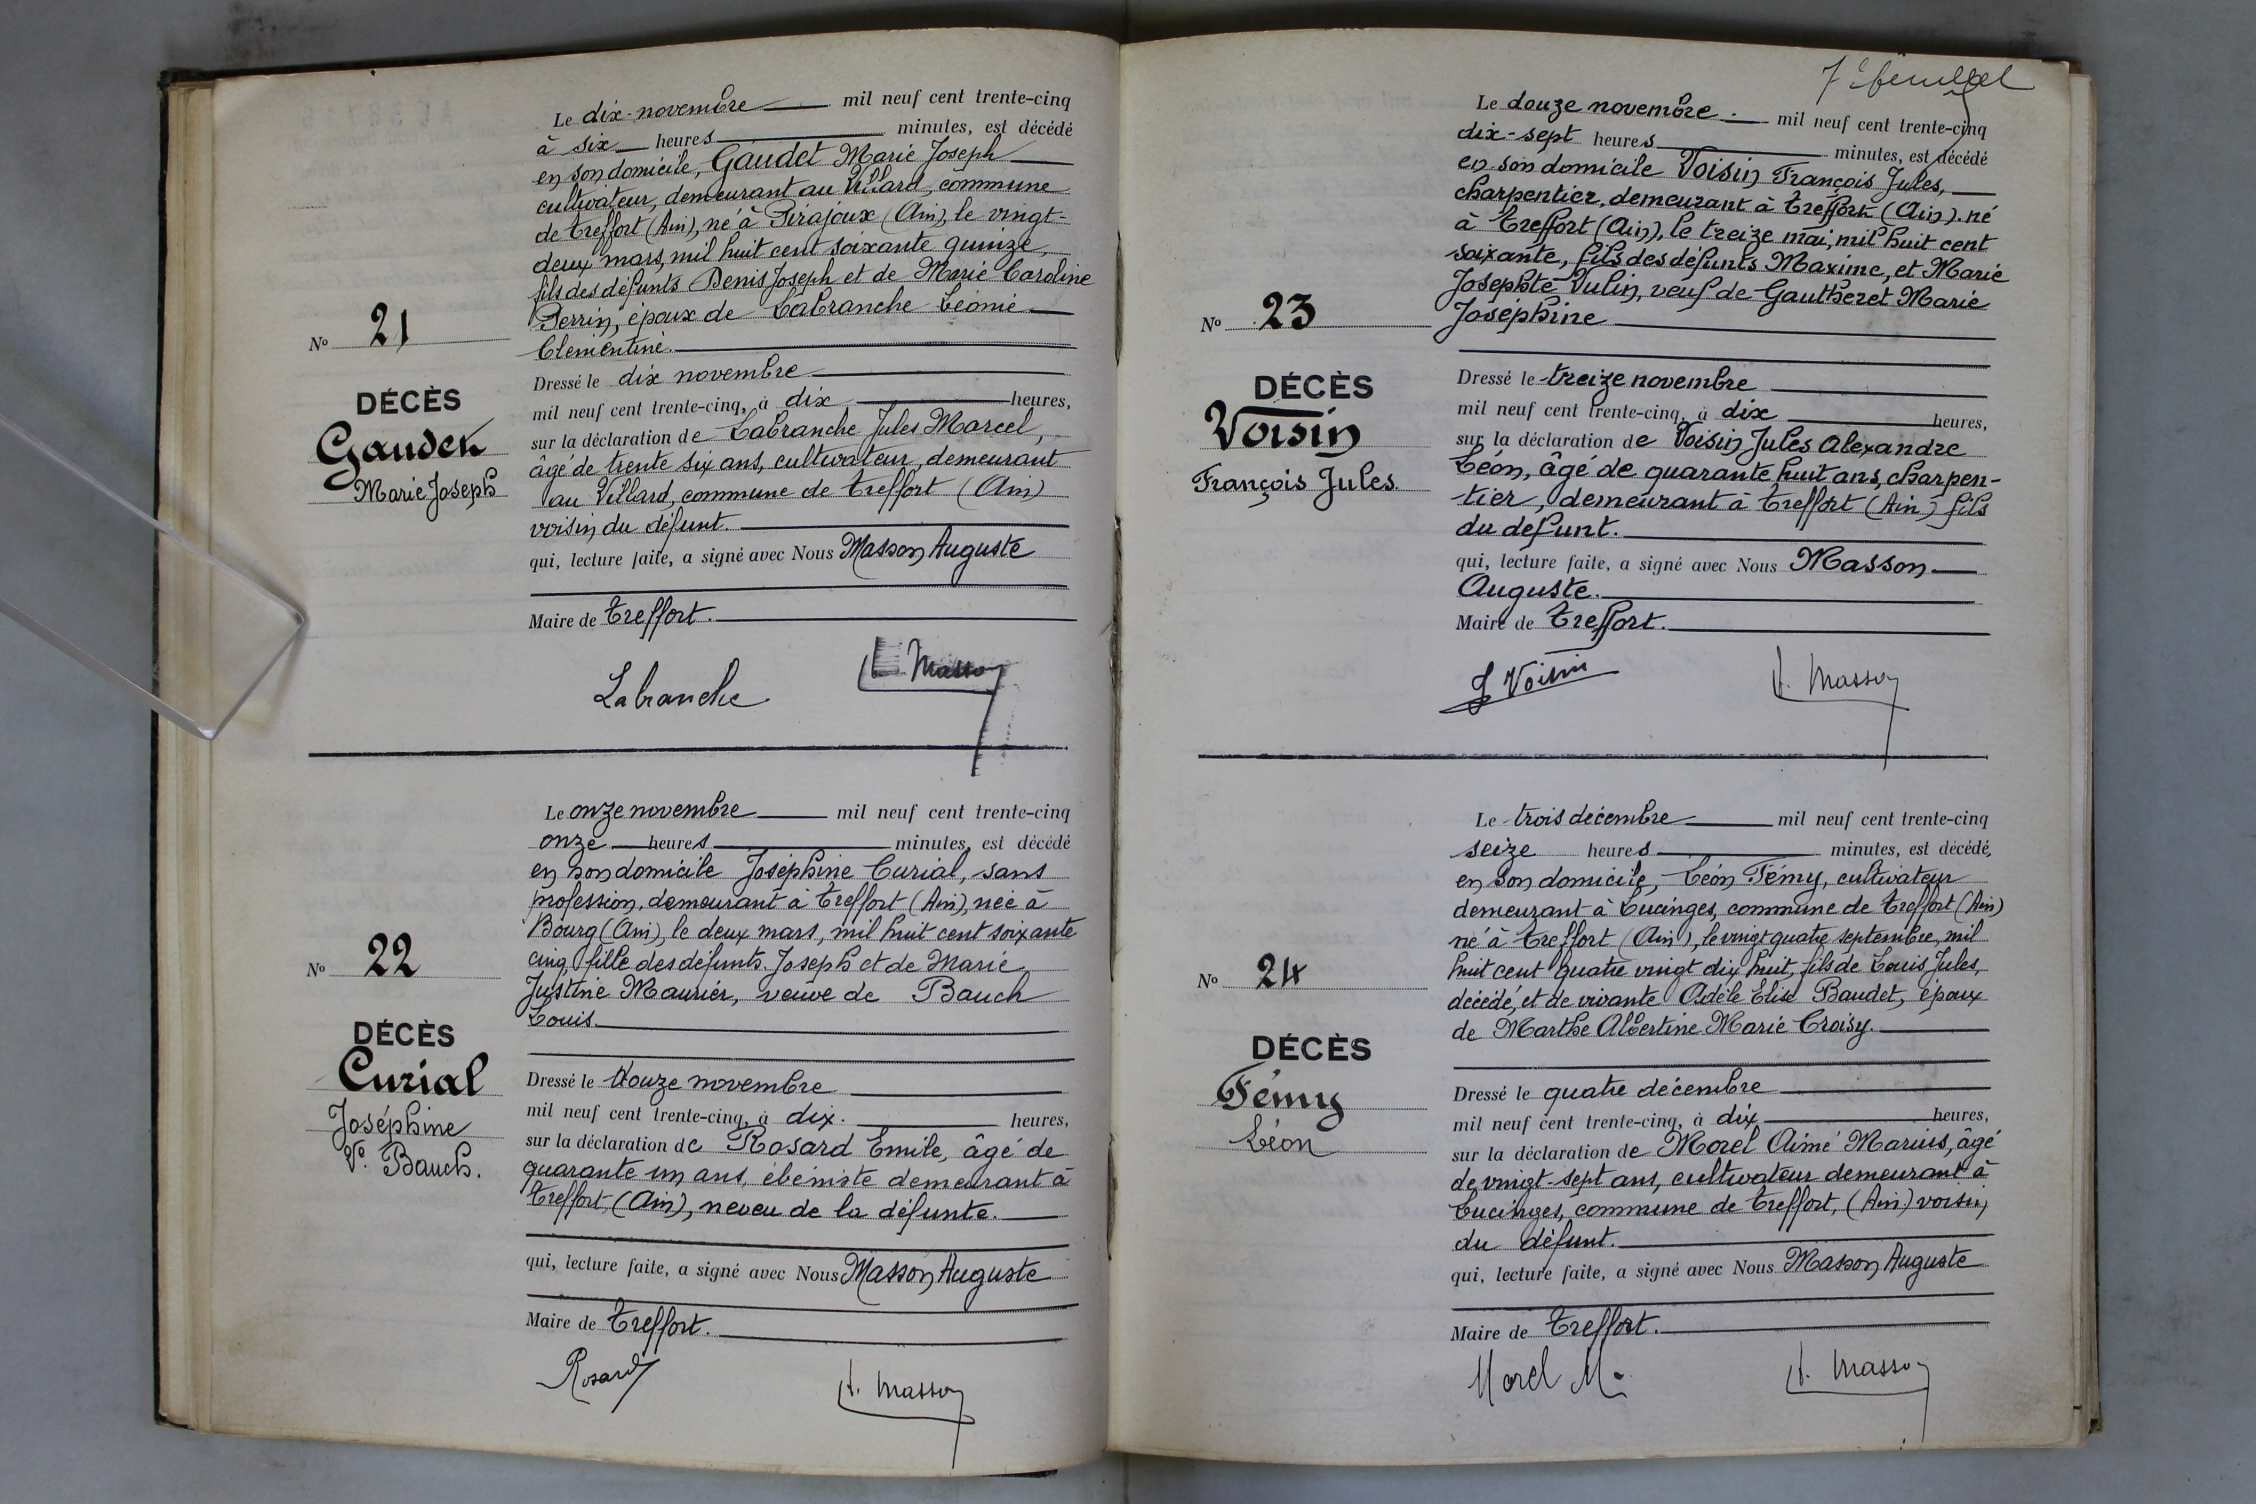 Le dix novembre mil neuf cent trente-cinq
à six heures minutes, est décédé
en son domicile, Gaudet Marie Joseph
cultivateur, demeurant au Villard, commune
de Treffort (Ain), né à Pirajoux (Ain), le vingt-
deux mars, mil huit cent soixante quinze,
fils des défunts Denis Joseph et de Marie Caroline
Perrin, époux de Labranche Léonie
Clémentine.
No 21
DÉCÈS
Gaudet
Marie Joseph
Dressé le dix novembre
mil neuf cent trente-cinq, à dix heures,
sur la déclaration de Labranche Jules Marcel,
âgé de trente six ans, cultivateur, demeurant
au Villard, commune de Treffort (Ain)
voisin du défunt.
qui, lecture faite, a signé avec Nous Masson Auguste
Maire de Treffort.
Labranche Masson
Le onze novembre mil neuf cent trente-cinq
onze heures minutes, est décédé
en son domicile Joséphine Curial, sans
profession, demeurant à Treffort (Ain), née à
Bourg (Ain), le deux mars, mil huit cent soixante
cinq, fille des défunts Joseph et de Marie
Justine Maurier, veuve de Bauch
Louis.
No 22
DÉCÈS
Curial
Joséphine
Ve. Bauch.
Dressé le douze novembre
mil neuf cent trente-cinq, à dix. heures,
sur la déclaration de Rosard Emile, âgé de
quarante un ans, ébéniste demeurant à
Treffort (Ain), neveu de la défunte.
qui, lecture faite, a signé avec Nous Masson Auguste
Maire de Treffort.
Rosard A. Masson
Le douze novembre mil neuf cent trente-cinq
dix-sept heures minutes, est décédé
en son domicile Voisin François Jules,
charpentier, demeurant à Treffort (Ain). né
à Treffort (Ain), le treize mai, mil huit cent
soixante, fils des défunts Maxime, et Marie
Josephte Vulin, veuf de Gautheret Marie
Joséphine
No 23
DÉCÈS
Voisin
François Jules
Dressé le treize novembre
mil neuf cent trente-cinq, à dix heures,
sur la déclaration de Voisin Jules Alexandre
Léon, âgé de quarante huit ans, charpen-
tier, demeurant à Treffort (Ain) fils
du defunt.
qui, lecture faite, a signé avec Nous Masson
Auguste.
Maire de Treffort.
Voisin A. Masson
Le trois décembre mil neuf cent trente-cinq
seize heures minutes, est décédé,
en son domicile, Léon Fémy, cultivateur
demeurant à Lucinges, commune de Treffort (Ain)
né à Treffort (Ain), le vingt quatre septembre, mil
huit cent quatre vingt dix huit, fils de Louis Jules,
décédé, et de vivante Adèle Elise Baudet, époux
de Marthe Albertine Marie Croisy.
No 24
DÉCÈS
Fémy
Léon
Dressé le quatre décembre
mil neuf cent trente-cinq, à dix heures,
sur la déclaration de Morel Aimé Marius, âgé
de vingt-sept ans, cultivateur demeurant à
Lucinges, commune de Treffort, (Ain) voisin
du défunt.
qui, lecture faite, a signé avec Nous Masson Auguste
Maire de Treffort.
Morel M. A. Masson